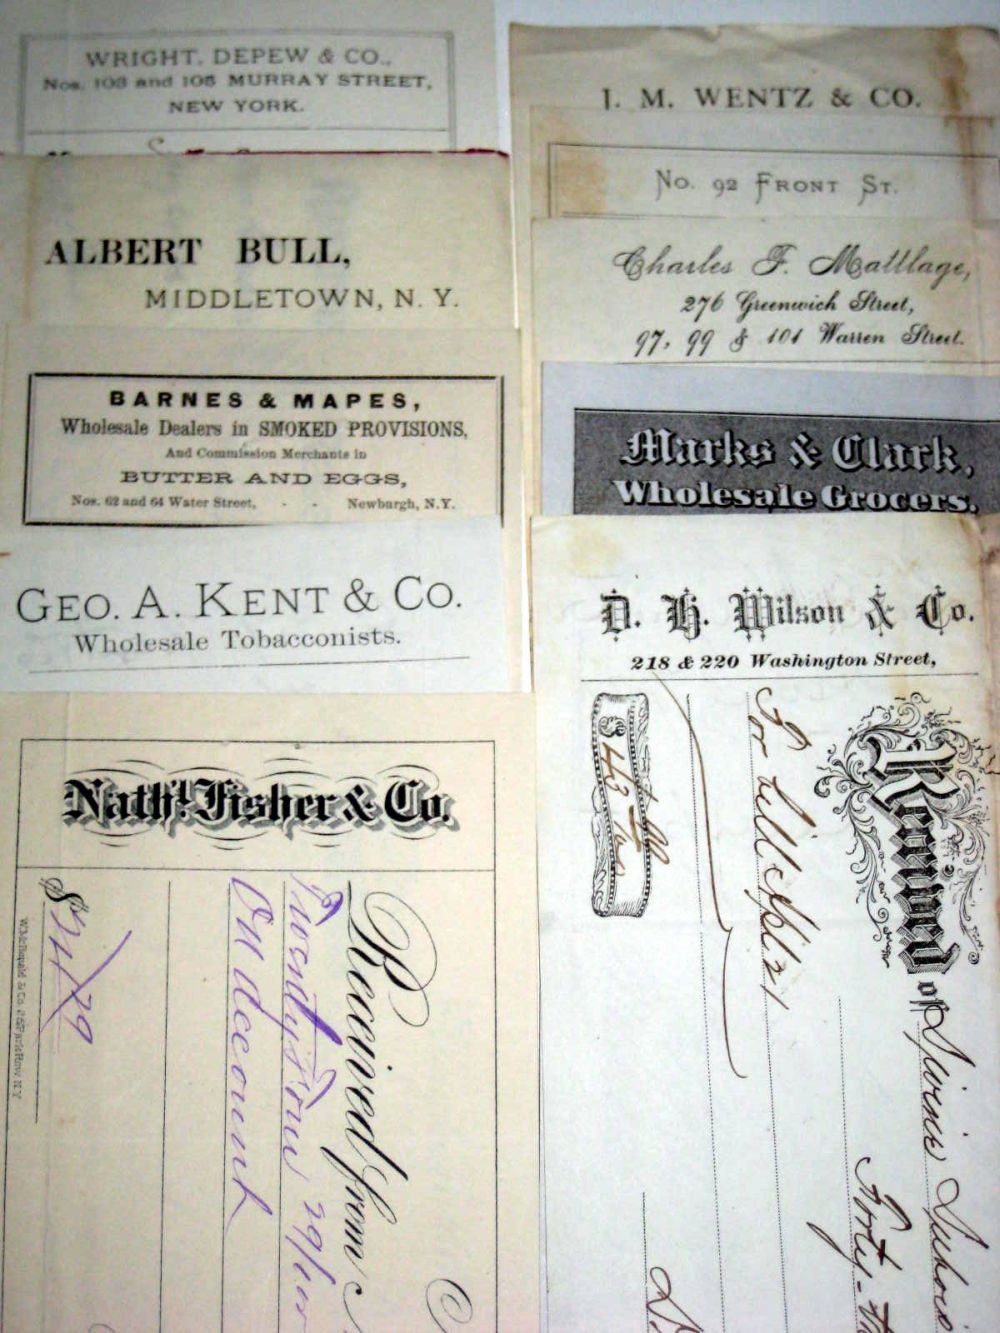 WRIGHT, DEPEW & CO.,
Nos. 103 and 105 MURRAY STREET,
NEW YORK.
ALBERT BULL,
MIDDLETOWN, N. Y.
BARNES & MAPES,
Wholesale Dealers in SMOKED PROVISIONS,
And Commission Merchants in
BUTTER AND EGGS,
Nos. 62 and 64 Water Street, - - Newburgh, N.Y.
GEO. A. KENT & CO.
Wholesale Tobacconists.
Nathl. Fisher & Co.
Received from
Twenty four 29/100
On account
$24/29
J. M. WENTZ & CO.
No. 92 FRONT ST.
Charles F. Mattlage,
276 Greenwich Street,
97, 99 & 101 Warren Street.
Marks & Clark,
Wholesale Grocers.
D. H. Wilson & Co.
218 & 220 Washington Street,
Received of
Forty-
For bill Sept 21
$ 43